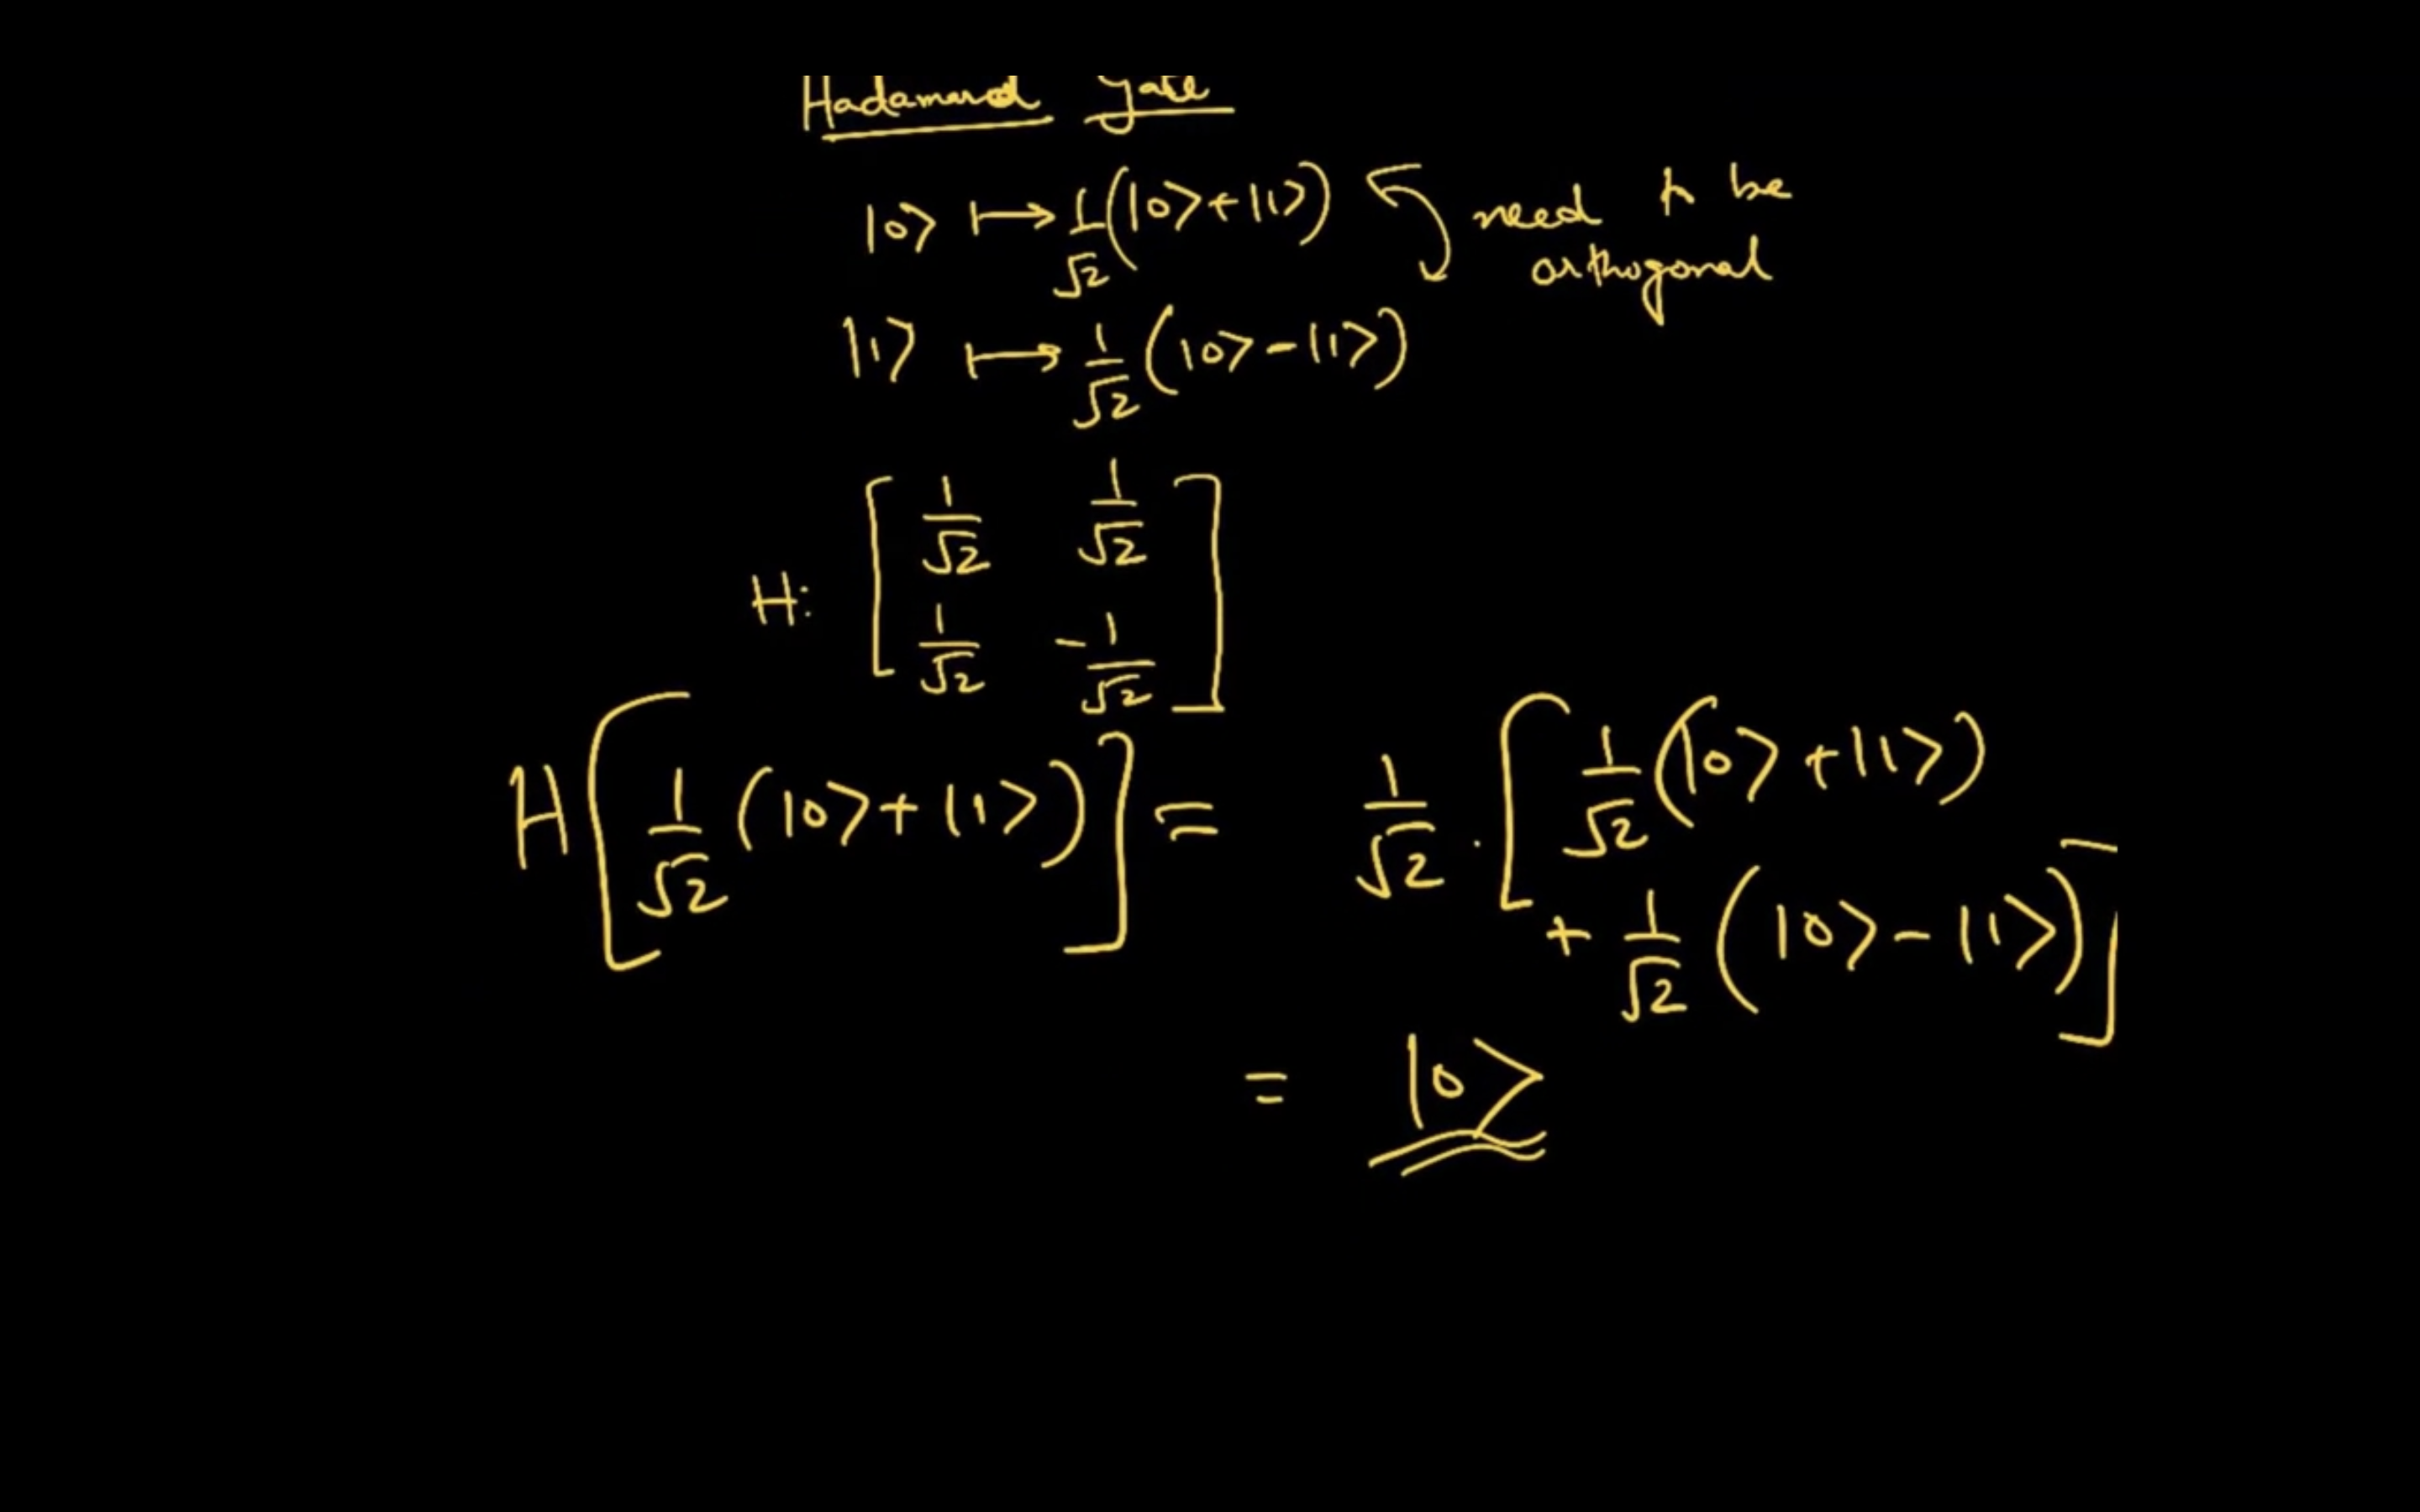 Hadamard gate
|0⟩ ↦ 1/√2 (|0⟩+|1⟩) need to be
orthogonal
|1⟩ ↦ 1/√2 (|0⟩-|1⟩)
H: [ 1/√2 1/√2
1/√2 -1/√2 ]
H[ 1/√2 (|0⟩+|1⟩) ] = 1/√2 · [ 1/√2 (|0⟩+|1⟩)
+ 1/√2 (|0⟩-|1⟩) ]
= |0⟩